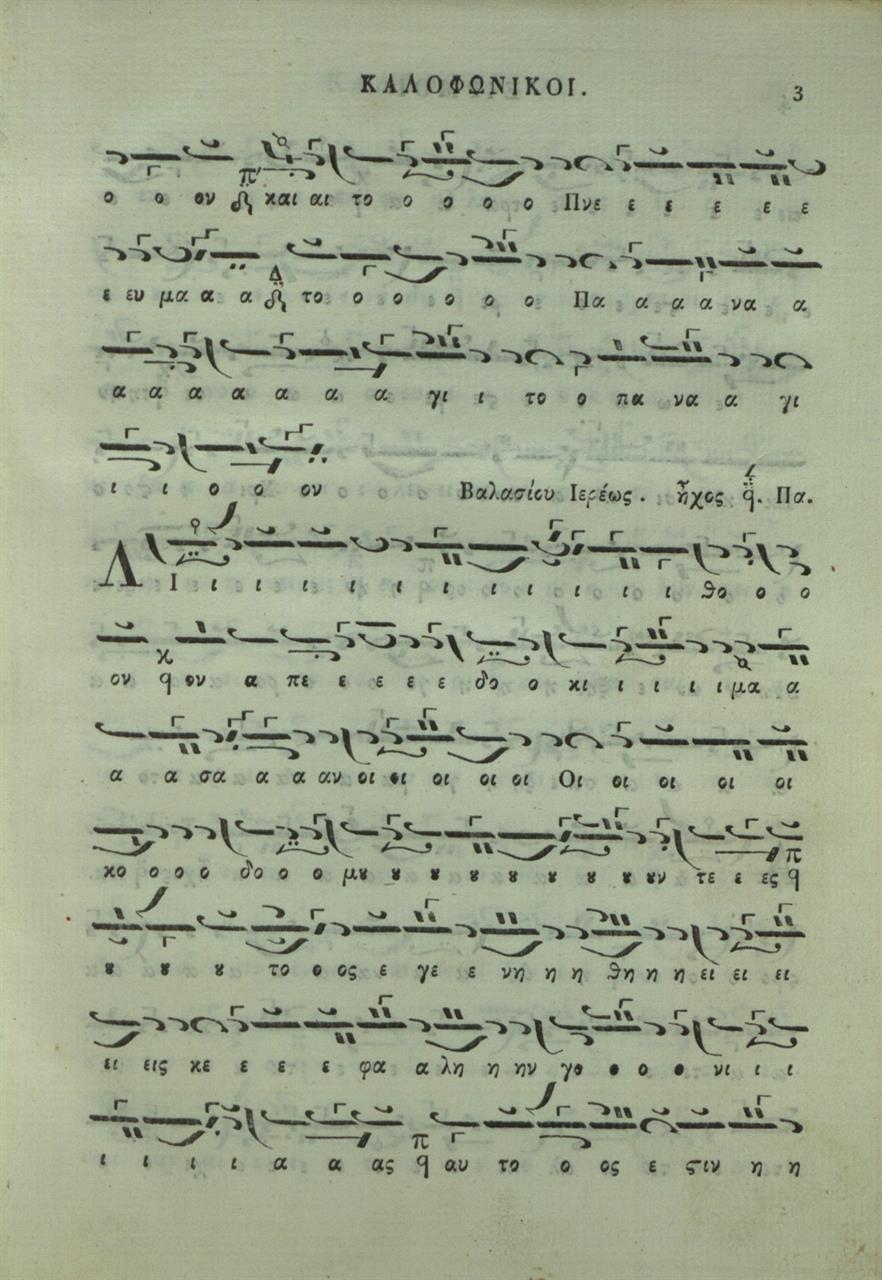 ΚΑΛΟΦΩΝΙΚΟΙ. 3
ο ο ον και αι το ο ο ο ο Πνε ε ε ε ε ε
ε ευ μα α α το ο ο ο ο ο Πα α α α να α
α α α α α α α γι ι το ο πα να α γι
ι ι ο ο ον Βαλασίου Ιερέως. ἦχος q. Πα.
Λ Ι ι ι ι ι ι ι ι ι ι ι ι ι θο ο ο
ον ον α πε ε ε ε ε δο ο κι ι ι ι ι μα α
α α σα α α αν οι οι οι οι οι Οι οι οι οι οι
κο ο ο ο δο ο ο μȣ ȣ ȣ ȣ ȣ ȣ ȣ ȣ ȣν τε ε ες
ȣ ȣ ȣ το ο ος ε γε ε νη η η θη η η ει ει ει
ει εις κε ε ε ε φα α λη η ην γο ο ο ο νι ι ι
ι ι ι ι α α ας αυ το ο ος ε ϛιν η η